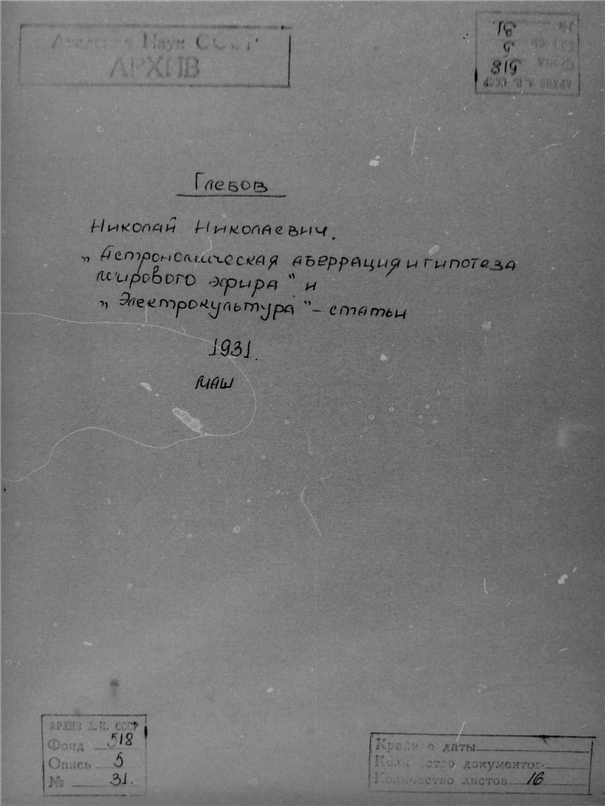 Академия Наук СССР
АРХИВ
Глебов
Николай Николаевич.
„Астрономическая аберрация и гипотеза
мирового эфира" и
„Электрокультура" – статьи
1931.
маш
АРХИВ А.Н. СССР
Фонд 518
Опись 5
№ 31.
Крайние даты
Количество документов
Количество листов 16
АРХИВ А.Н. СССР
518
5
31